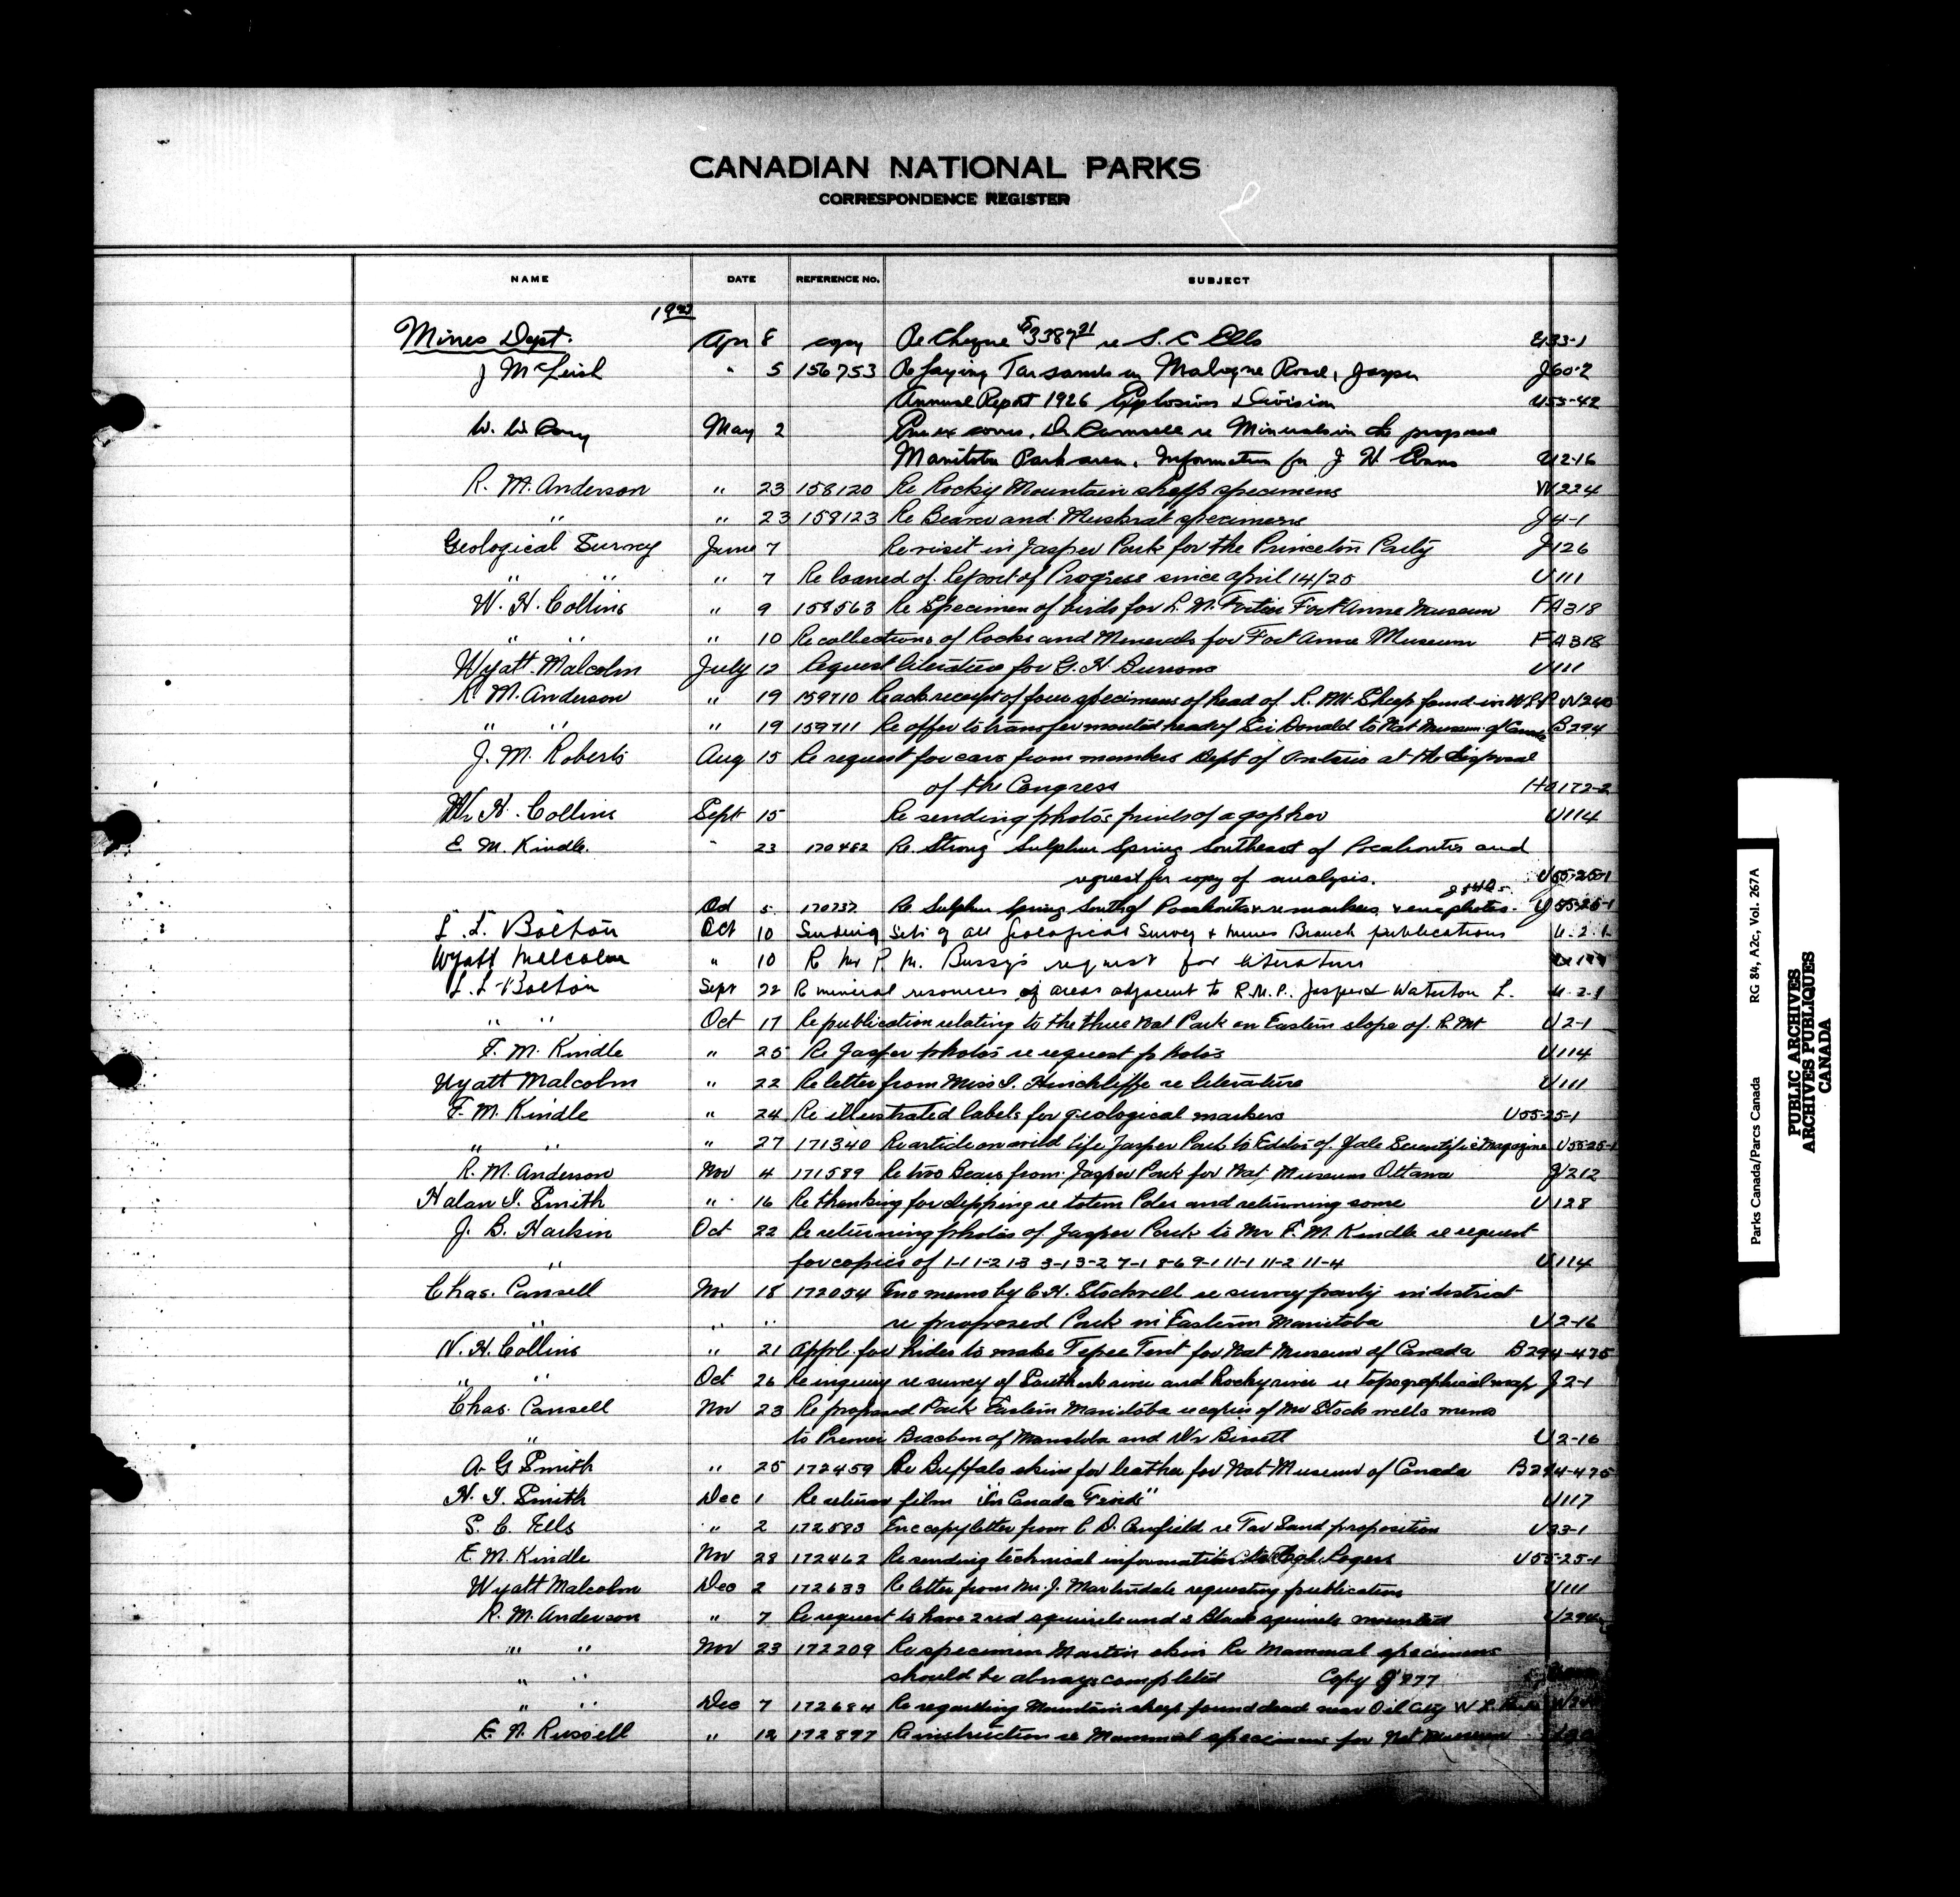 CANADIAN NATIONAL PARKS
CORRESPONDENCE REGISTER
NAME DATE REFERENCE No. SUBJECT
19
Mines Dept. Apr 8 copy Re Cheque $3387 21 re S. C. Ells U33-1
J McLeish " 5 156753 Re laying Tar sands in Maligne Road, Jasper J60-2
Annual Report 1926 Explosives Division U55-42
W. W. Cory May 2 corres. Dr Camsell re Minerals in the propose
Manitoba Park area. Information for J H Evans U2-16
R. M. Anderson " 23 158120 Re Rocky Mountain sheep specimens W224
" " 23 158123 Re Beaver and Muskrat specimens J4-1
Geological Survey June 7 Re visit in Jasper Park for the Princeton Party J126
" " " 7 Re loaned of Report of Progress since april 14/25 U111
W. H. Collins " 9 158563 Re Specimen of birds for L. M. Fortier Fort Anne Museum FA318
" " " 10 Re collections of Rocks and Minerals for Fort Anne Museum FA318
Wyatt Malcolm July 12 Request literature for G. H. U111
R. M. Anderson " 19 159710 Re ack receipt of four specimens of head of R. Mt Sheep found in W L P W240
" " " 19 159711 Re offer to transfer mounted head of Sir Donald to Nat Museum of Canada B294
J. M. Roberts Aug 15 Re request for cars from members Dept of Interior at the disposal
of the Congress Ho172-2
W. H. Collins Sept 15 Re sending photos prints of a gopher U114
E. M. Kindle. " 23 170462 Re. Strong Sulphur Spring Southeast of Pocahontas and
request for copy of analysis. U55-25-1
Oct 5 170737 Re Sulphur Spring South of Pocahontas re markers & enc photos. U55-25-1
L. L. Bolton Oct 10 Sending Sets of all Geological Survey & Mines Branch publications U.2.1.
Wyatt Malcolm " 10 R Mr P. M. Bussy's request for literature
L. L. Bolton Sept 22 R mineral resources of areas adjacent to R.M.P. Jasper & Waterton L. U.2.1
" " Oct 17 Re publication relating to the three Nat Park on Eastern slope of R. Mt U2-1
F. M. Kindle " 25 Re Jasper photos re request photos U114
Wyatt Malcolm " 22 Re letter from Miss I. Hinchliffe re literature U111
F. M. Kindle " 24 Re illustrated labels for geological markers U55-25-1
" " " 27 171340 Re article on wild life Jasper Park to Editor of Yale Scientific Magazine U55-25-1
R. M. Anderson Nov 4 171589 Re two Bears from Jasper Park for Nat Museum Ottawa J212
Halan I. Smith " 16 Re thanking for clipping re totem Poles and returning some U128
J. B. Harkin Oct 22 Re returning photos of Jasper Park to Mr F. M. Kindle re request
" for copies of 1-1 1-2 1-3 3-1 3-2 7-1 8-6 9-1 11-1 11-2 11-4 U114
Chas. Camsell Nov 18 172054 Enc memo by C. H. Stockwell re survey party in district
" " " re proposed Park in Eastern Manitoba U2-16
W. H. Collins " 21 Appl. for hides to make Tepee Tent for Nat Museum of Canada B294-475
" " Oct 26 Re inquiry re survey of river and Rocky river re topographical map J2-1
Chas. Camsell Nov 23 Re proposed Park Eastern Manitoba re copies of Mr Stockwells memo
" to Premier Bracken of Manitoba and Dr Bissett U2-16
A. G. Smith " 25 172459 Re Buffalo skins for leather for Nat Museum of Canada B294-475
H. I. Smith Dec 1 Re return film "In Canada U117
S. C. Ells " 2 172583 Enc copy letter from C. D. re Tar Sand proposition U33-1
E. M. Kindle Nov 28 172462 Re sending technical information to Rogers U55-25-1
Wyatt Malcolm Dec 2 172633 Re letter from Mr. J. Martindale requesting publications U111
R. M. Anderson " 7 Re request to have 2 red squirrels and 2 Black squirrels mounted
" " Nov 23 172209 Re specimen Martin skin Re Mammal specimens
" " should be always completed Copy
" " Dec 7 172684 Re regarding Mountain sheep found dead near Oil City W L Park
E. N. Russell " 12 172897 Re instruction re Mammal specimens for Nat Museum
RG 84, A2c, Vol. 267A
Parks Canada/Parcs Canada
PUBLIC ARCHIVES
ARCHIVES PUBLIQUES
CANADA